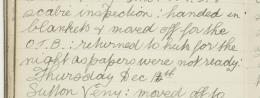 scabie inspection: handed in
blankets & moved off for the
O.T.B.: returned to huts for the
night as papers were not ready:
Thursday Dec 12th
Sutton Veny: moved off to